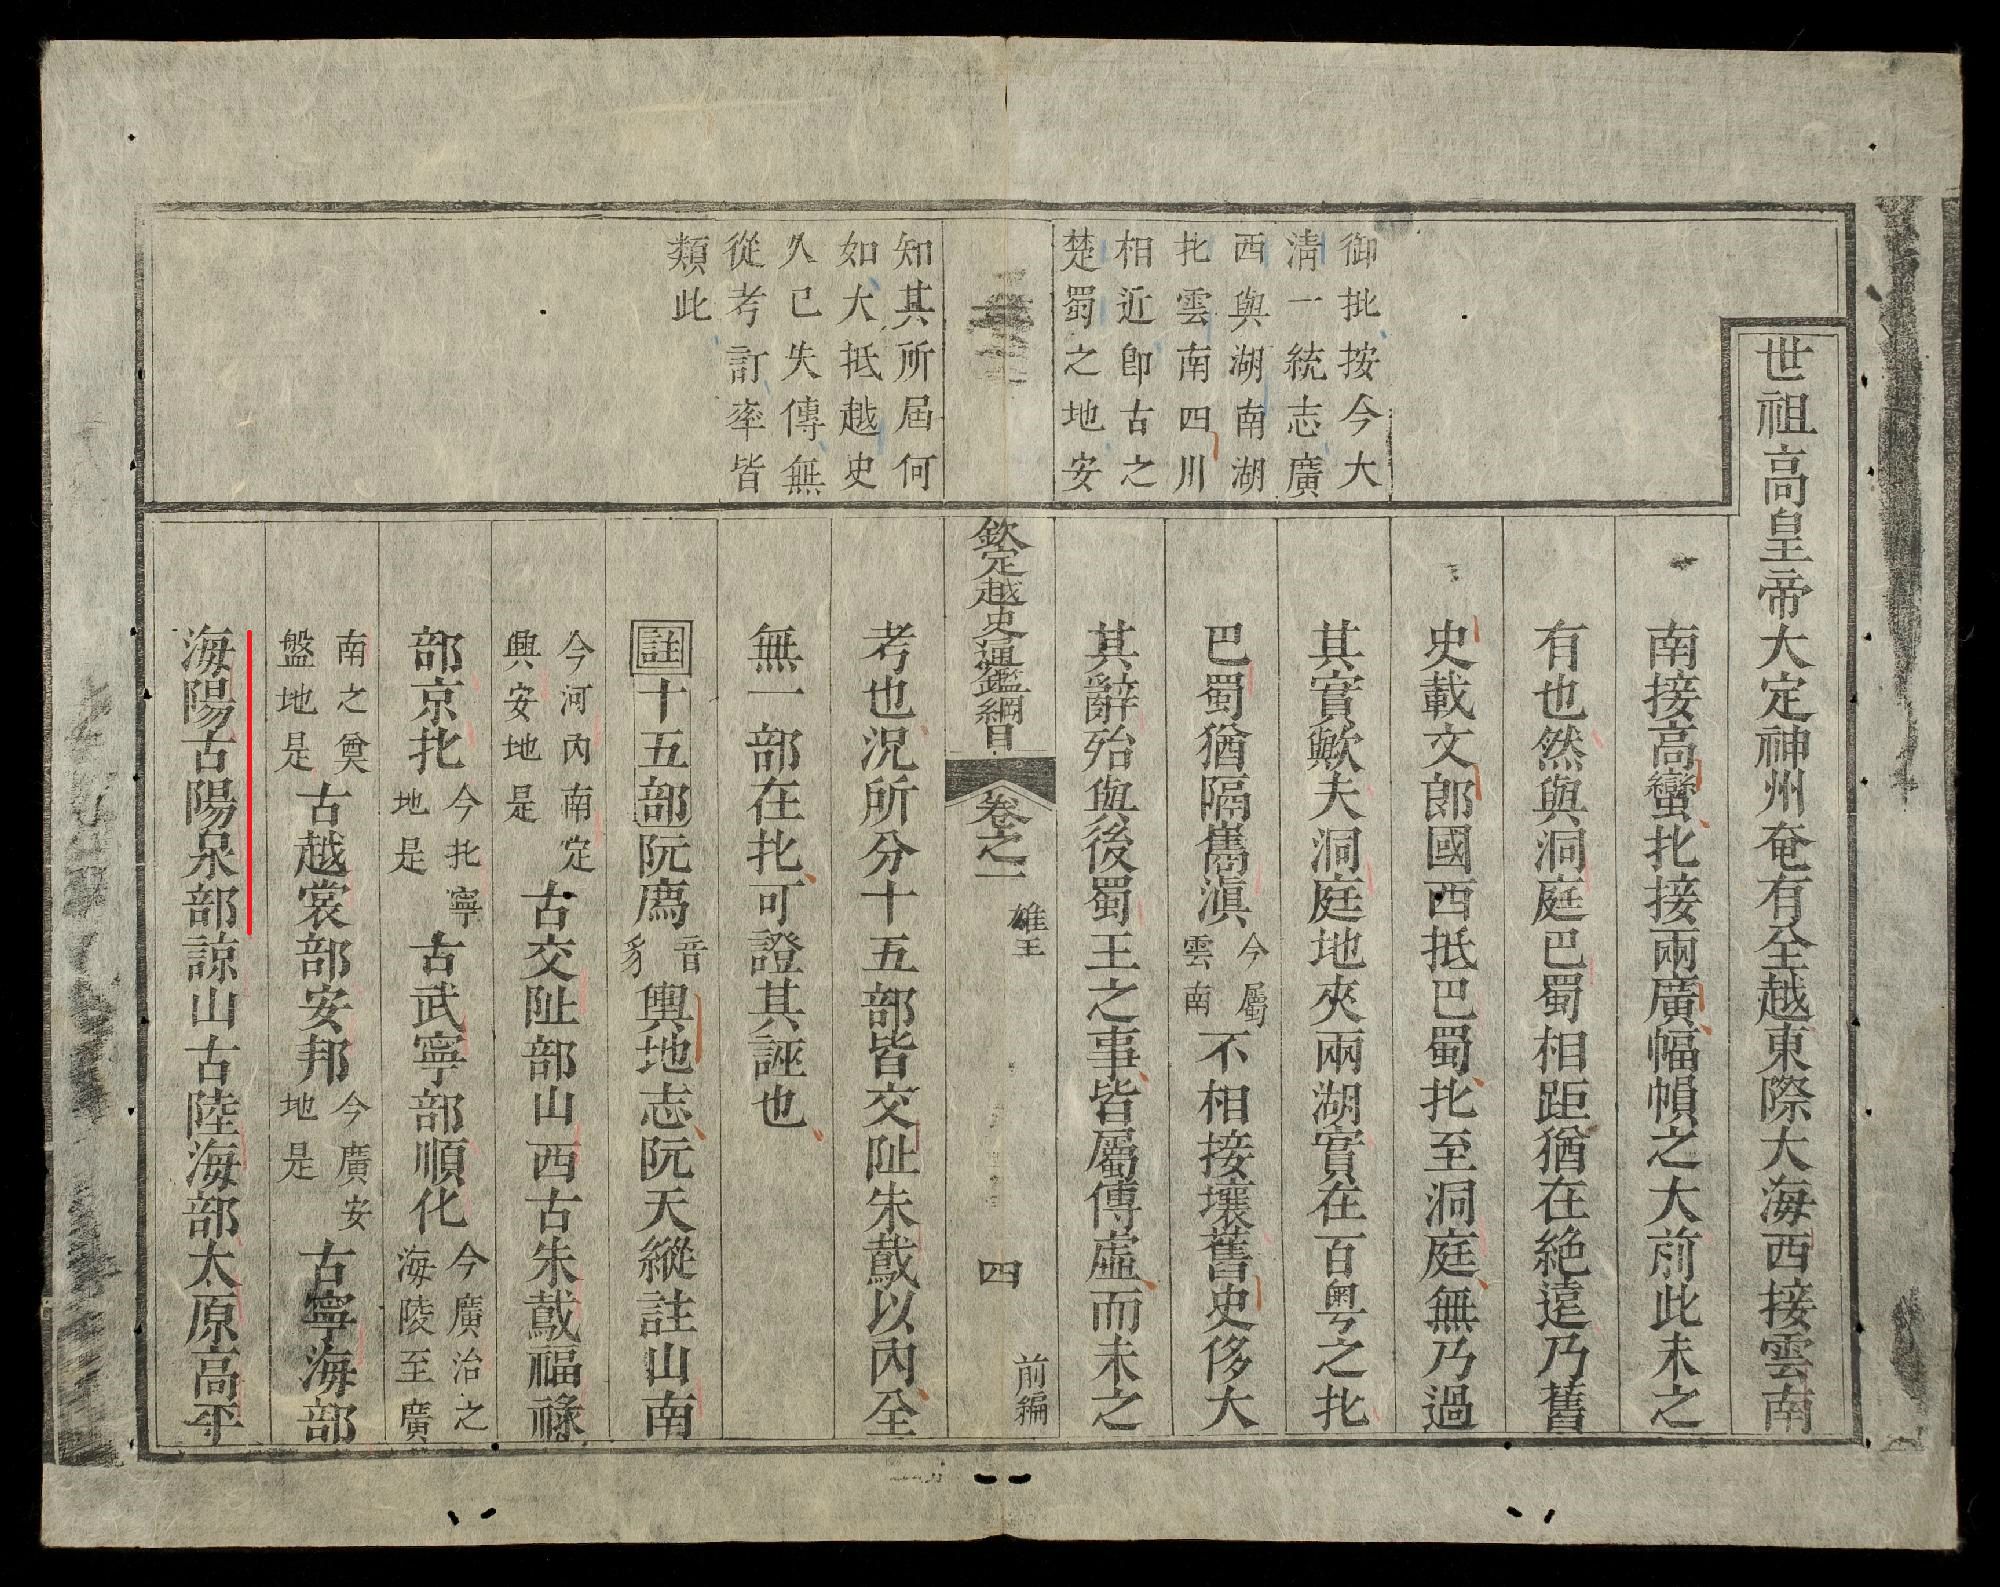 御批按今大
清一統志廣
西與湖南湖
北雲南四川
相近卽古之
楚蜀之地安
知其所屆何
如大抵越史
久已失傳無
從考訂率皆
類此
世祖高皇帝大定神州奄有全越東際大海西接雲南
南接高蠻北接兩廣幅幀之大前此未之
有也然與洞庭巴蜀相距猶在絶遠乃舊
史載文郎國西抵巴蜀北至洞庭無乃過
其實歟夫洞庭地夾兩湖實在百粤之北
巴蜀猶隔巂滇今屬雲南不相接壤舊史侈大
其辭殆與後蜀王之事皆屬傳虛而未之
欽定越史通鑑綱目 卷之一 雄王 四 前編
考也況所分十五部皆交趾朱鳶以內全
無一部在北可證其誣也
註十五部阮廌音豸輿地志阮天縱註山南
今河內南定興安地是古交趾部山西古朱鳶福祿
部京北今北寧地是古武寧部順化今廣治之海陵至廣
南之奠盤地是古越裳部安邦今廣安地是古寧海部
海陽古陽泉部諒山古陸海部太原高平